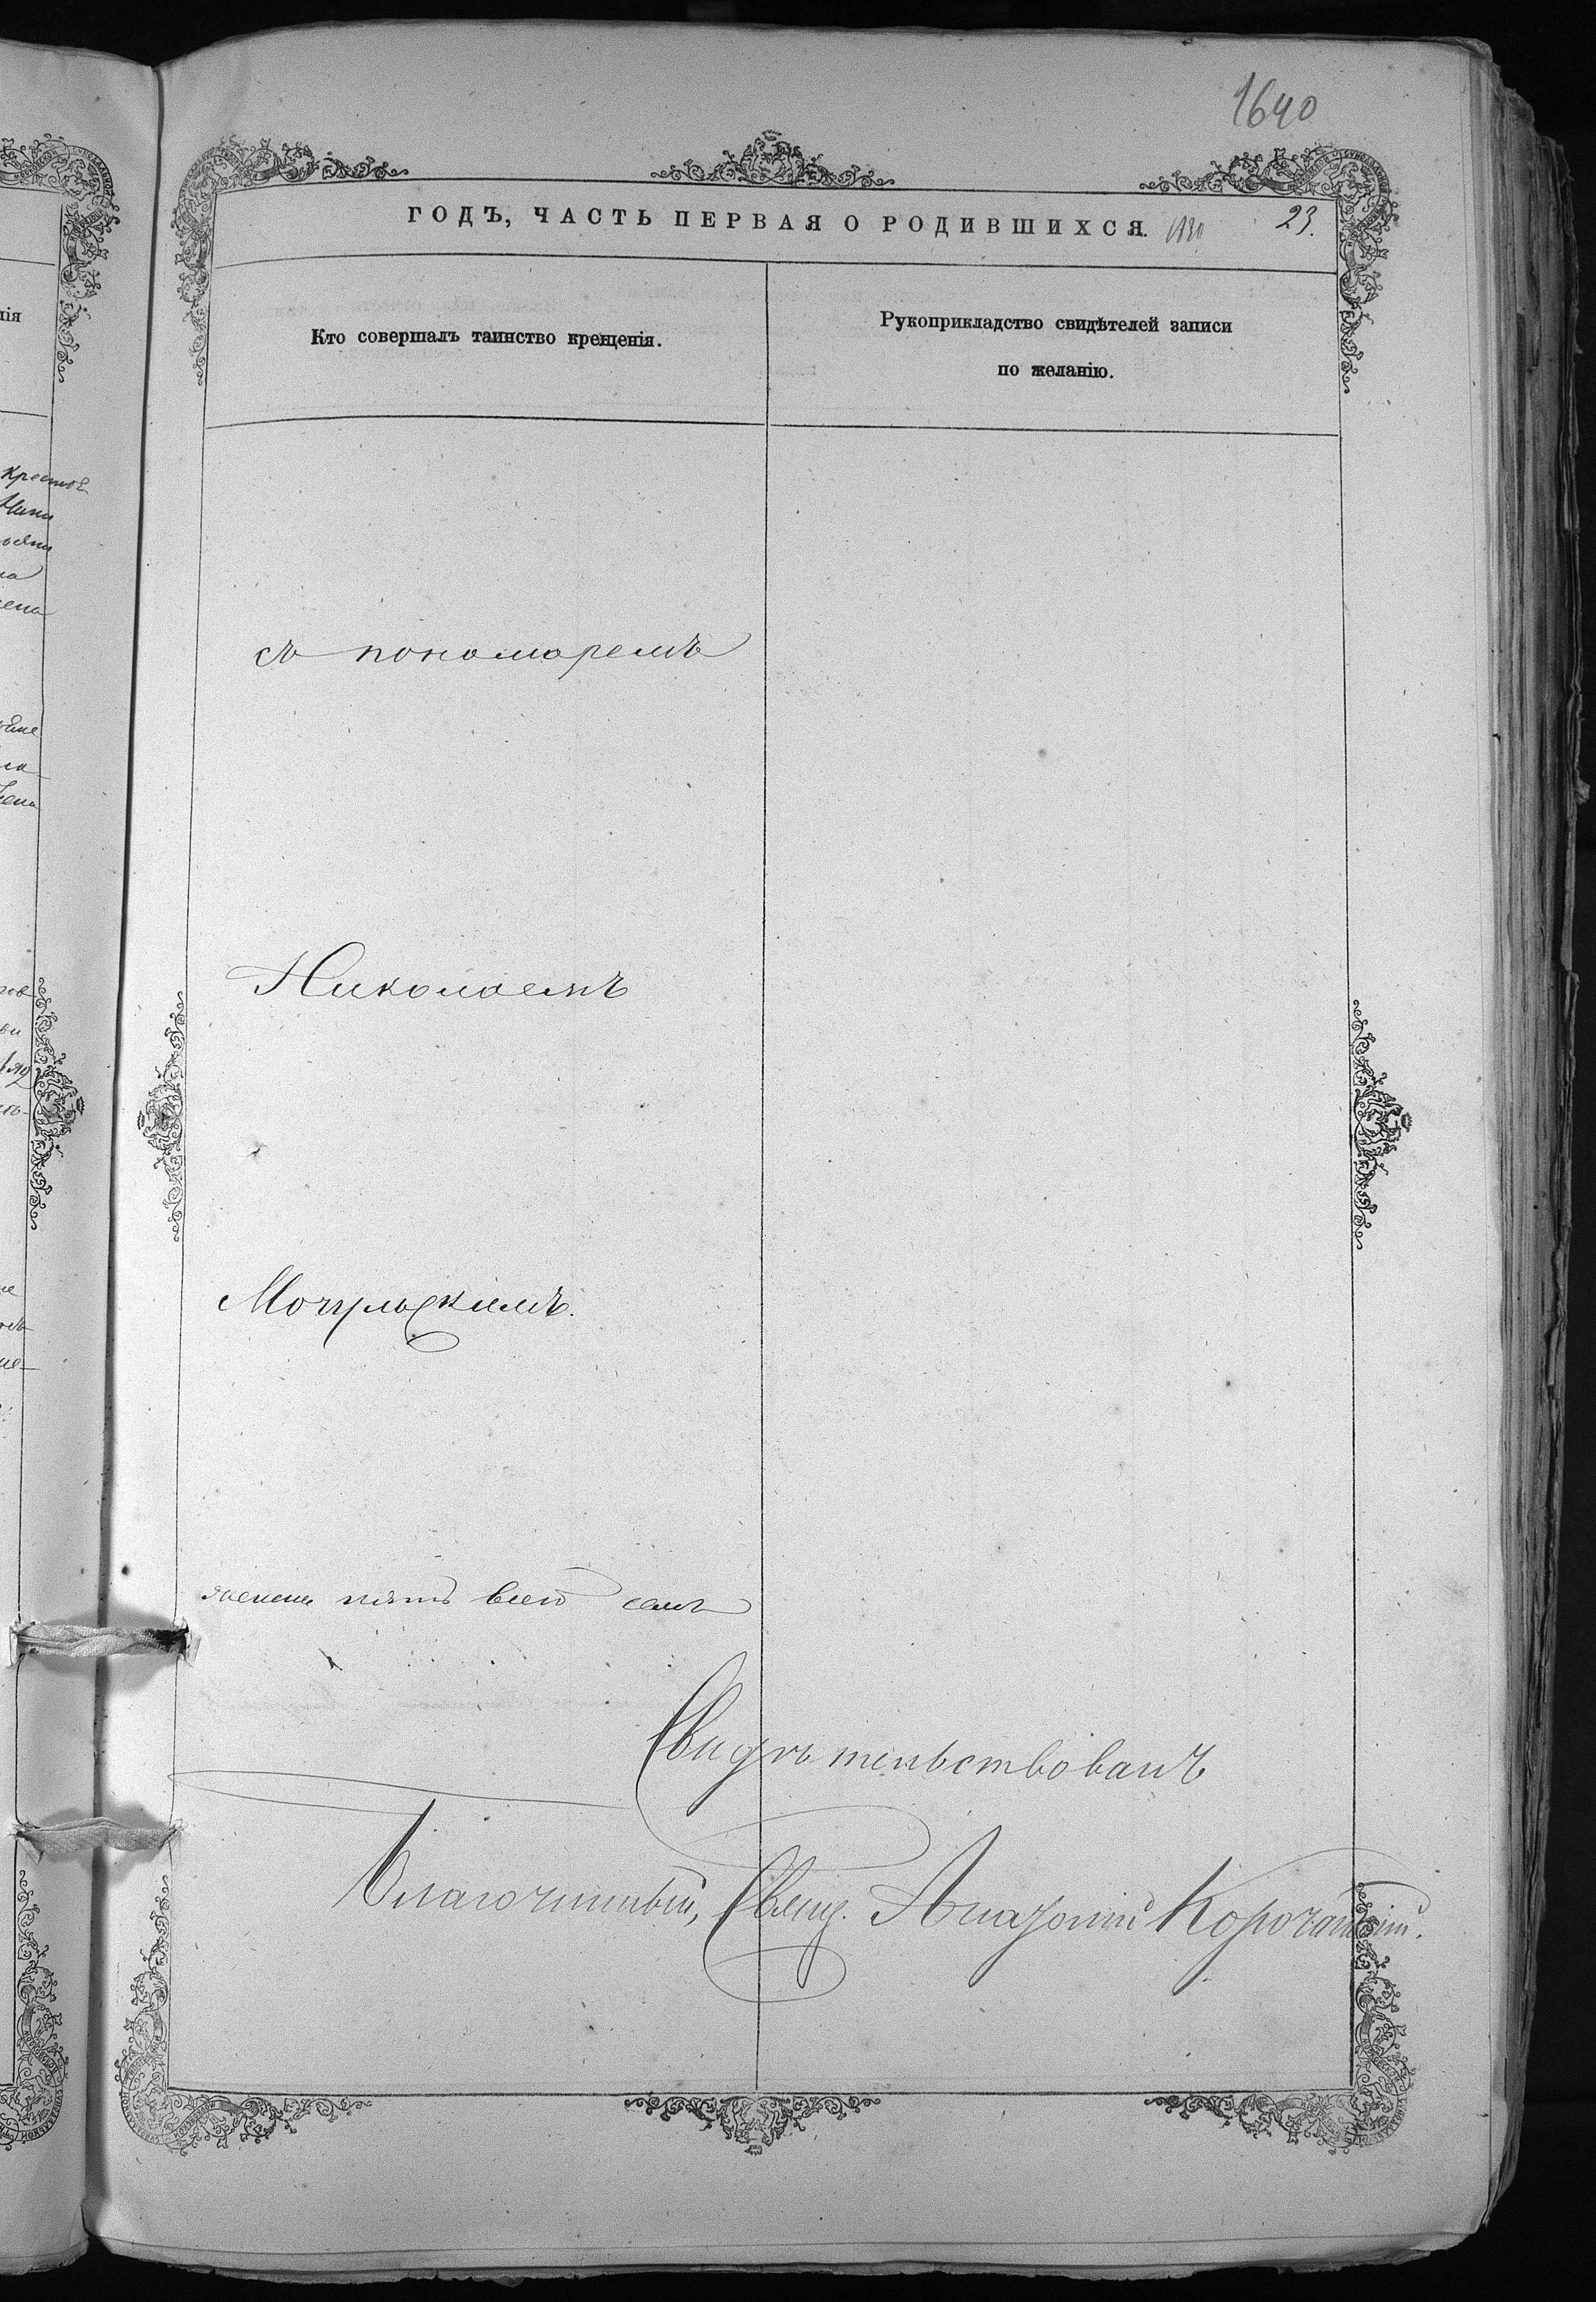 1640
ГОДЪ, ЧАСТЬ ПЕРВАЯ О РОДИВШИХСЯ.
23.
Кто совершалъ таинство крещенія.
Рукоприкладство свидѣтелей записи
по желанію.
съ пономаремъ
Николаемъ
Мочульскимъ.
женска пять всего семь
Свидѣтельствовалъ
Благочинный, Свящ. Анатолий Корочанскій.